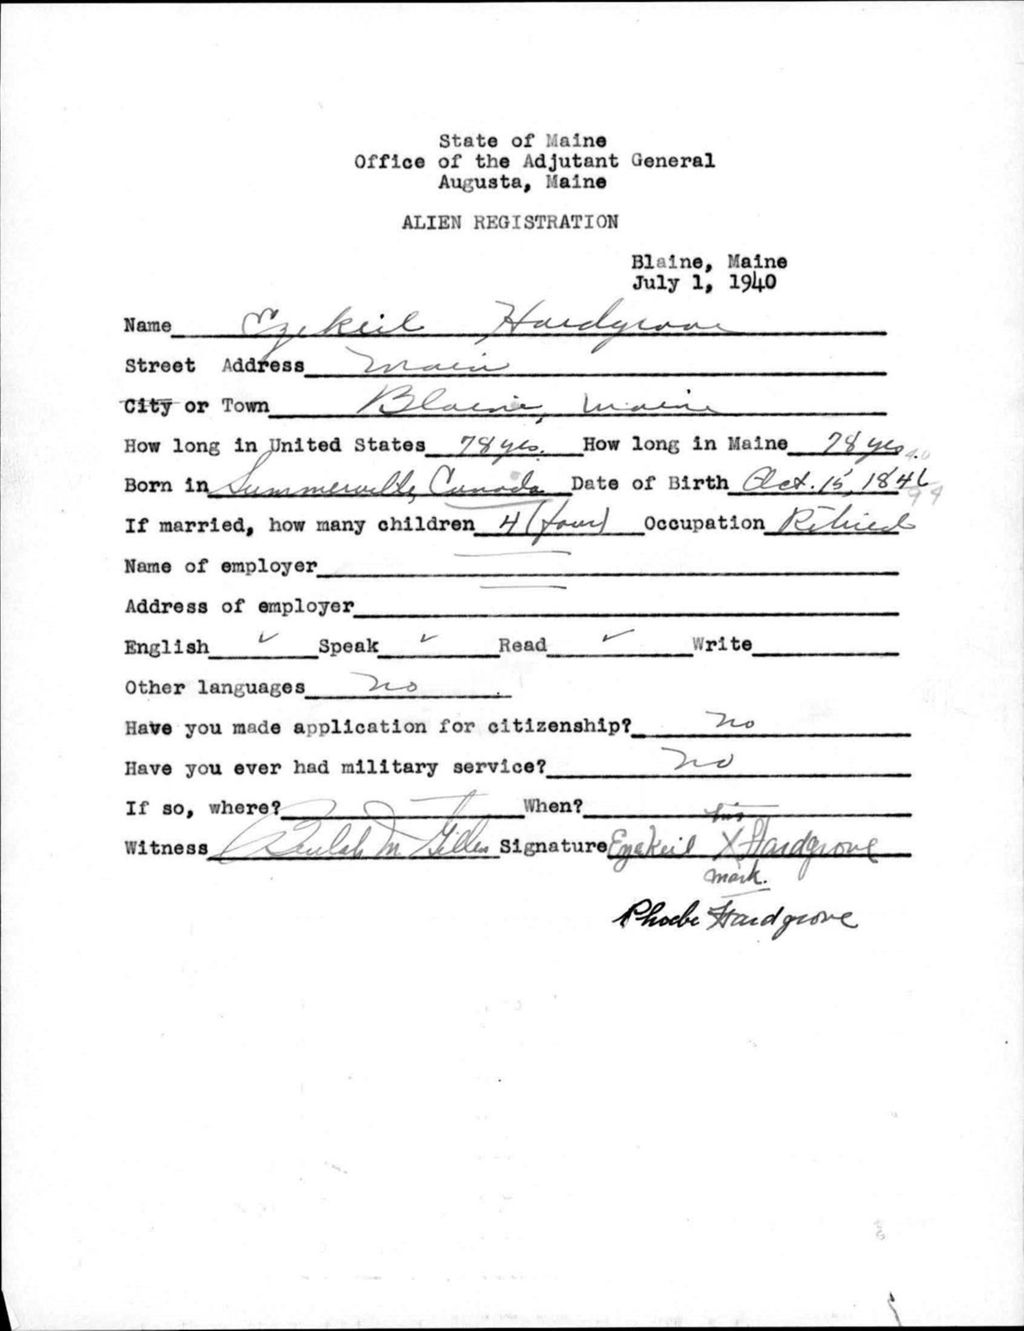 State of Maine
Office of the Adjutant General
Augusta, Maine
ALIEN REGISTRATION
Blaine, Maine
July 1, 1940
Name Ezekeil Hardgrove
Street Address Main
City or Town Blaine, Maine
How long in United States 78 yrs. How long in Maine 78 yrs
Born in Summerville, Canada Date of Birth Oct. 15, 1846
If married, how many children 4 (four) Occupation Retired
Name of employer
Address of employer
English ✓ Speak ✓ Read ✓ Write
Other languages no
Have you made application for citizenship? No
Have you ever had military service? No
If so, where? When?
Witness Beulah M Gilles Signature Ezekeil his X mark. Hardgrove
Phoebe Hardgrove